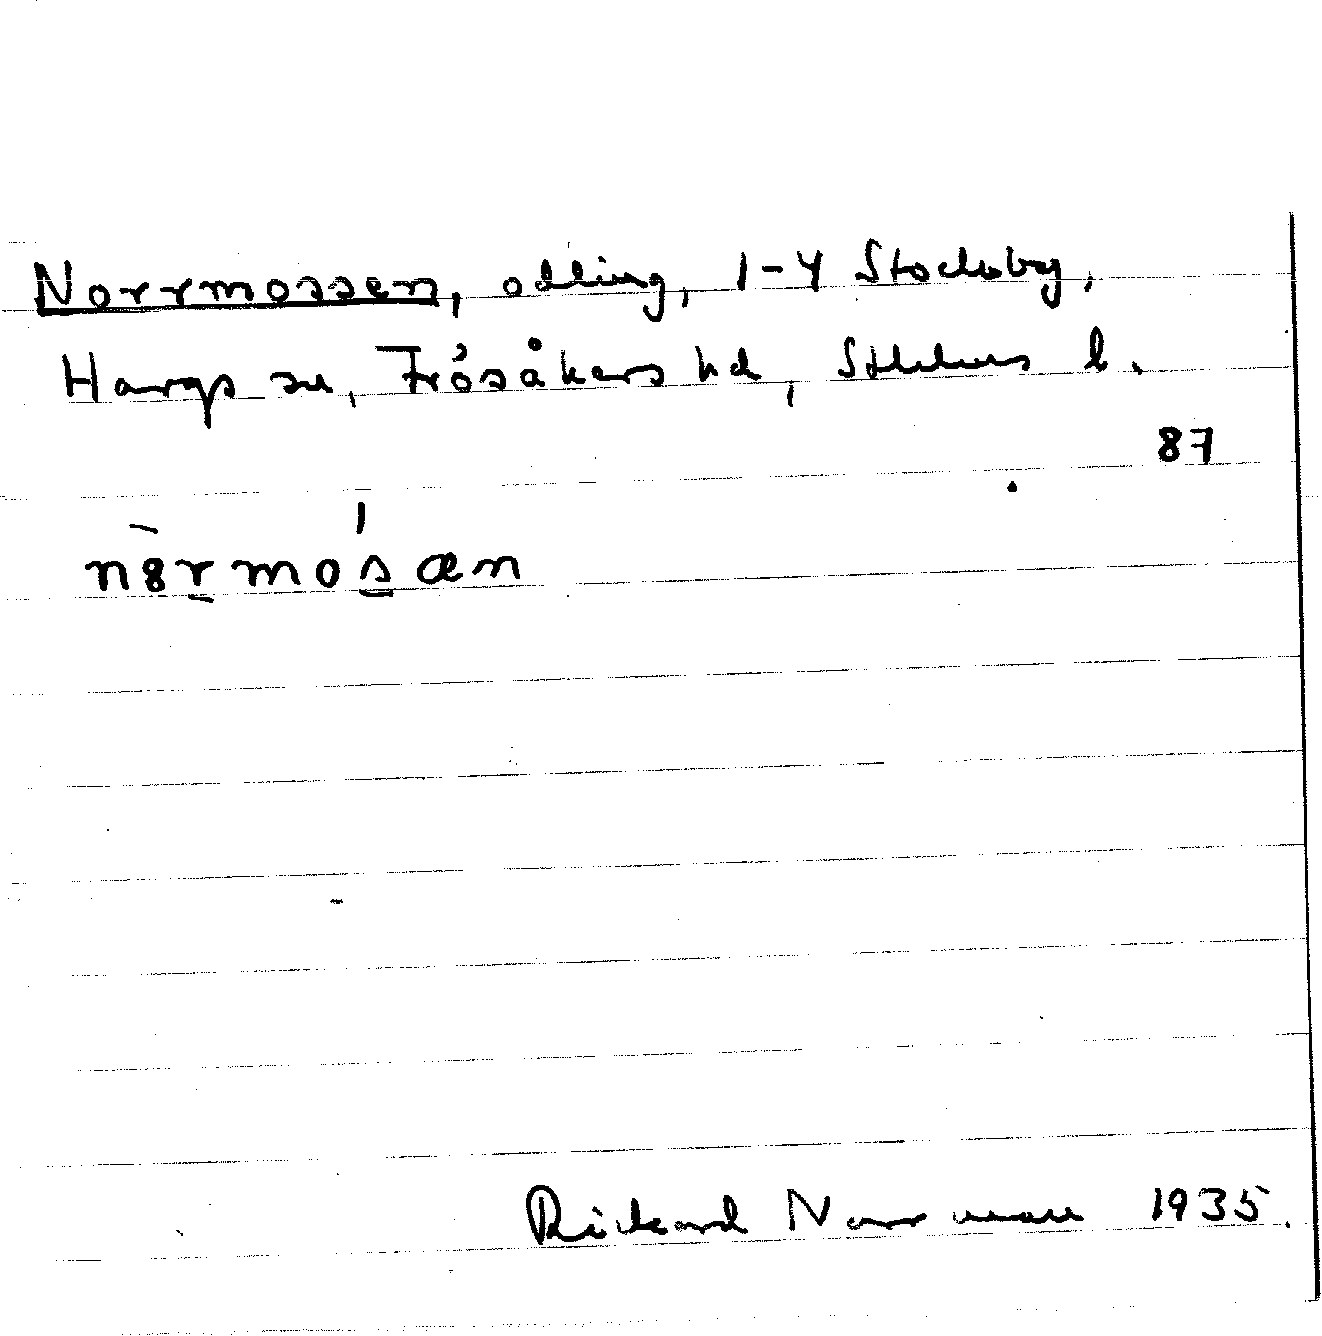 Norrmossen, odling, 1-4 Stocksby,
Hargs sn, Frösåkers hd, Sthlms l.
87
n8rmosæn
Rickard Norrman 1935.